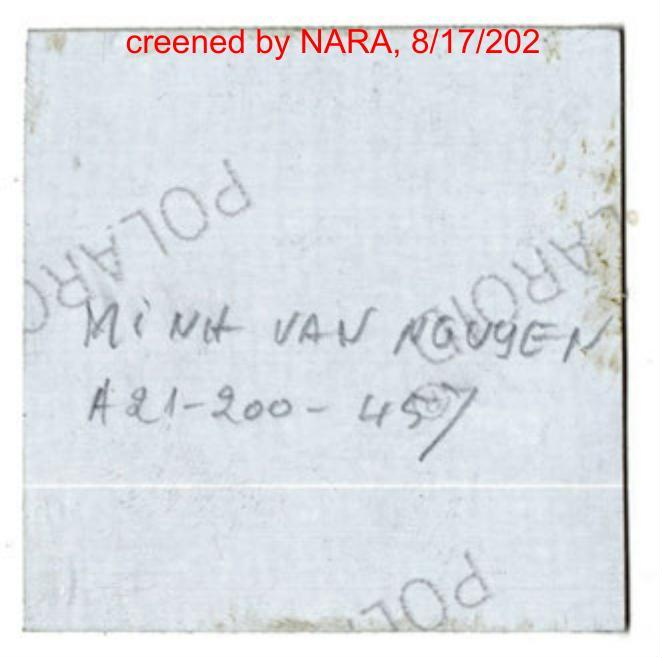 creened by NARA, 8/17/202
POLAROID
POLARO
LAROID®
MiNH VAN NGUYEN
A21-200-457
POL